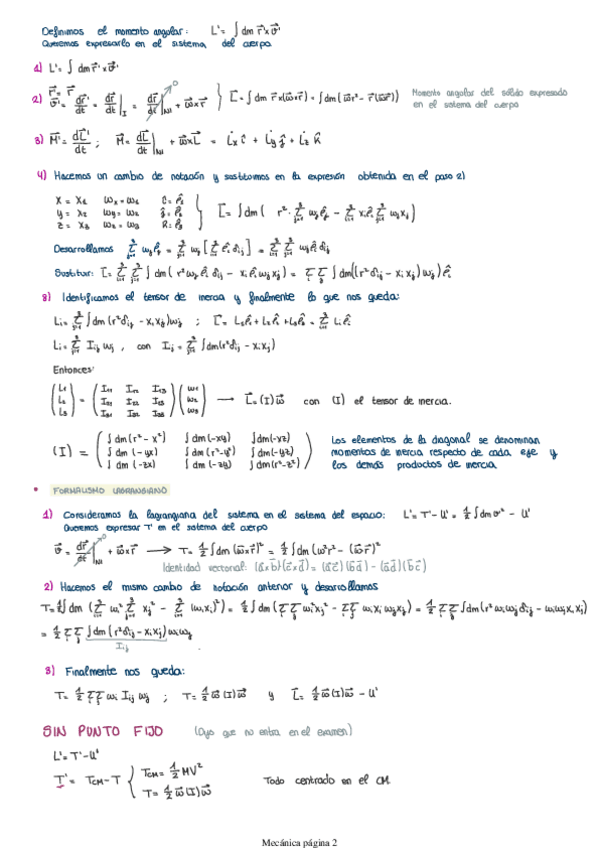 Definimos el momento angular: L' = ∫ dm r⃗'x v⃗'
Queremos expresarlo en el sistema del cuerpo
1) L' = ∫ dm r⃗'x v⃗'
2) r⃗' = r⃗
v⃗' = dr⃗'/dt = dr⃗/dt|I = dr⃗/dt|NI + ω⃗xr⃗ } L⃗ = ∫ dm r⃗x(ω⃗xr⃗) = ∫ dm (ω⃗r² - r⃗(ω⃗r⃗)) Momento angular del sólido expresado
en el sistema del cuerpo
3) M⃗' = dL⃗'/dt ; M⃗ = dL⃗/dt|NI + ω⃗xL⃗ = L̇x î + L̇y ĵ + L̇z k̂
4) Hacemos un cambio de notación y sustituimos en la expresión obtenida en el paso 2)
x = x₁ ωx = ω₁ î = ê₁
y = x₂ ωy = ω₂ ĵ = ê₂ } L⃗ = ∫ dm ( r² · Σ ωj êj - Σ xi êi Σ ωj xj )
z = x₃ ωz = ω₃ k̂ = ê₃
Desarrollamos Σ ωj êj = Σ ωj [ Σ êi δij ] = Σ Σ ωj êi δij
Sustituir: L⃗ = Σ Σ ∫ dm ( r² ωj êi δij - xi êi ωj xj ) = Σ Σ ∫ dm((r² δij - xi xj) ωj) êi
5) Identificamos el tensor de inercia y finalmente lo que nos queda:
Li = Σ ∫ dm (r² δij - xi xj) ωj ; L⃗ = L₁ê₁ + L₂ê₂ + L₃ê₃ = Σ Li êi
Li = Σ Iij ωj , con Iij = Σ ∫ dm (r² δij - xi xj)
Entonces:
(L₁ L₂ L₃) = (I₁₁ I₁₂ I₁₃ I₂₁ I₂₂ I₂₃ I₃₁ I₃₂ I₃₃) (ω₁ ω₂ ω₃) → L⃗ = (I) ω⃗ con (I) el tensor de inercia.
∫ dm (r² - x²) ∫ dm (-xy) ∫ dm (-xz)
(I) = ∫ dm (-yx) ∫ dm (r² - y²) ∫ dm (-yz)
∫ dm (-zx) ∫ dm (-zy) ∫ dm (r² - z²)
Los elementos de la diagonal se denominan
momentos de inercia respecto de cada eje y
los demás productos de inercia
• FORMALISMO LAGRANGIANO
1) Consideramos la lagrangiana del sistema en el sistema del espacio: L' = T' - U' = 1/2 ∫ dm v'² - U'
Queremos expresar T' en el sistema del cuerpo
v⃗ = dr⃗/dt|NI + ω⃗xr⃗ → T = 1/2 ∫ dm (ω⃗xr⃗)² = 1/2 ∫ dm (ω²r² - (ω⃗r⃗)²)
Identidad vectorial: (a⃗xb⃗)(c⃗xd⃗) = (a⃗c⃗)(b⃗d⃗) - (a⃗d⃗)(b⃗c⃗)
2) Hacemos el mismo cambio de notación anterior y desarrollamos
T = 1/2 ∫ dm ( Σ ωi² Σ xj² - Σ (ωi xi)² ) = 1/2 ∫ dm ( Σ Σ ωi² xj² - Σ Σ ωi xi ωj xj ) = 1/2 Σ Σ ∫ dm (r² ωi ωj δij - ωi ωj xi xj)
= 1/2 Σ Σ ∫ dm (r² δij - xi xj) ωi ωj
Iij
3) Finalmente nos queda:
T = 1/2 Σ Σ ωi Iij ωj ; T = 1/2 ω⃗ (I) ω⃗ y L⃗ = 1/2 ω⃗ (I) ω⃗ - U'
SIN PUNTO FIJO (Ojo que no entra en el examen)
L' = T' - U'
T' = TCM - T { TCM = 1/2 MV²
T = 1/2 ω⃗ (I) ω⃗
Todo centrado en el CM
Mecánica página 2